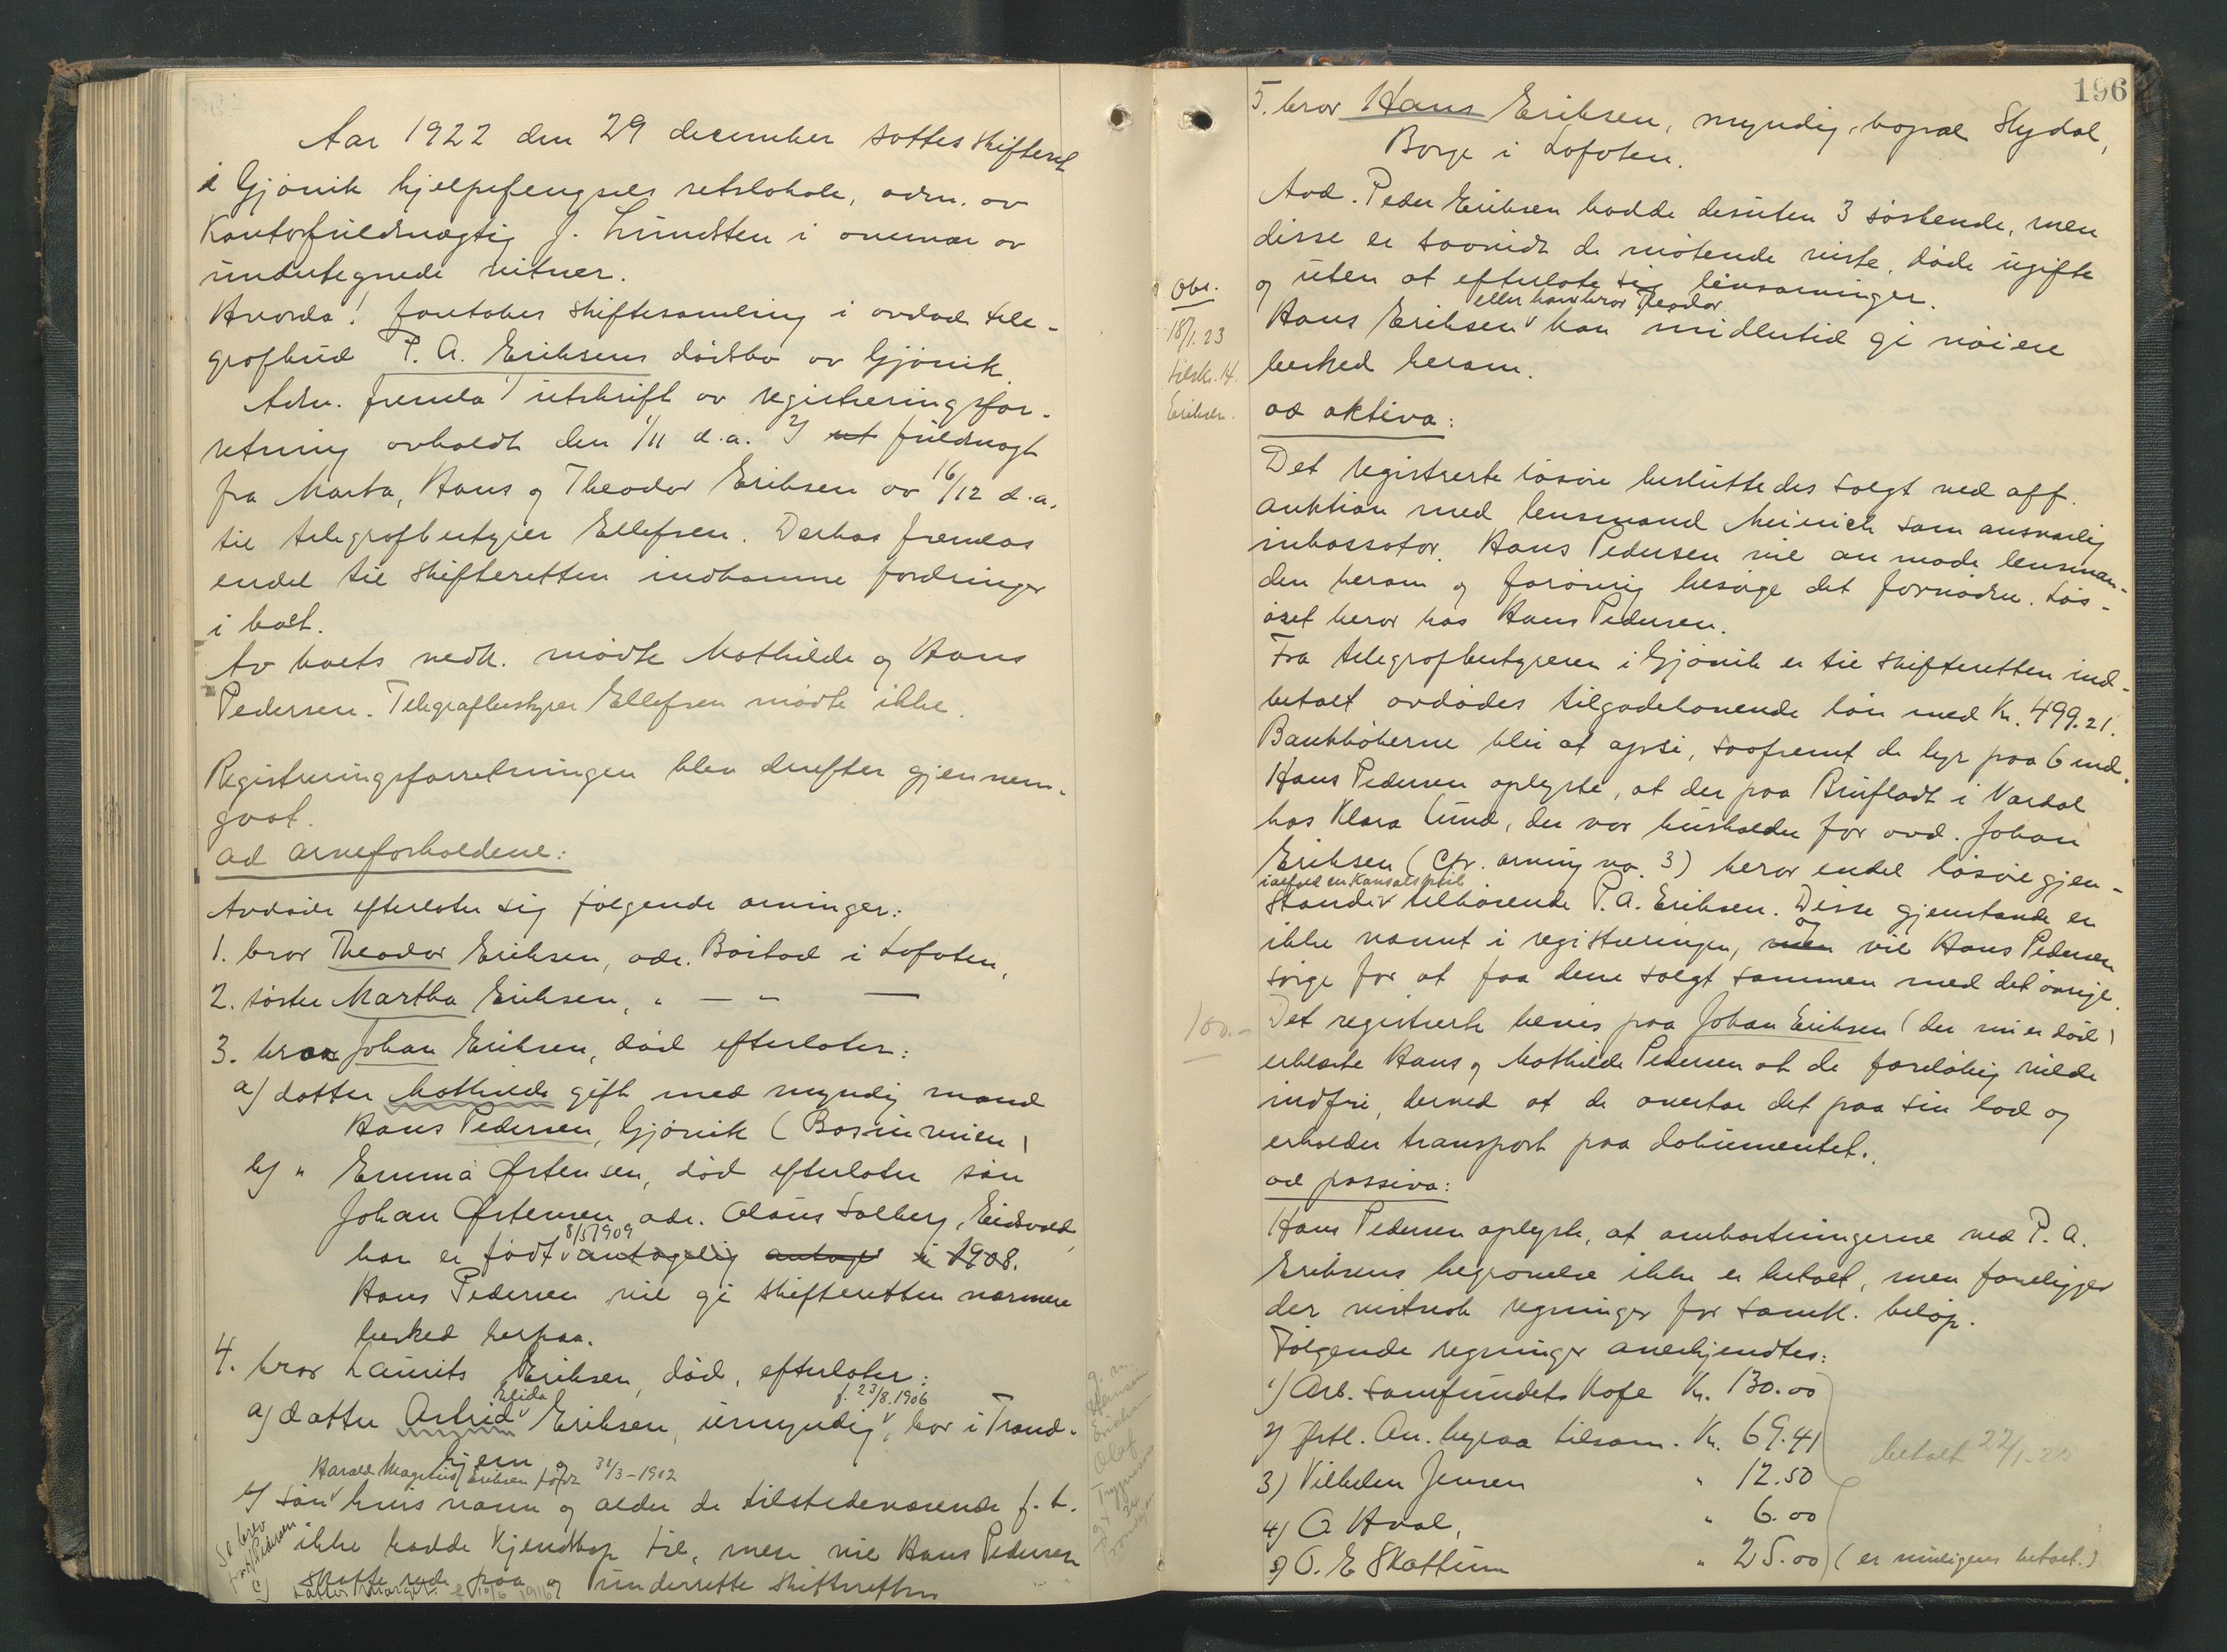 Aar 1922 den 29 december sattes skifteret
i Gjövik hjelpefengsels retslokale, adm. av
Kontorfuldmægtig J. Lundsten i overvær av
undertegnede vitner.
Hvorda! foretokes skiftesamling i avdød tele-
grafbud P. A. Eriksens dödsbo av Gjövik.
Adm. fremla 1) utskrift av registreringsfor-
retning avholdt den 1/11 d.a. 2) fuldmagt
fra Marta, Hans og Theodor Eriksen av 16/12 d.a.
til telegrafbestyrer Ellefsen. Derhos fremlas
endel til skifteretten indkomne fordringer
i boet.
Av boets vedk. mödte Mathilde og Hans
Pedersen. Telegrafbestyrer Ellefsen mödte ikke.
Registreringsforretningen blev derefter gjennem-
gaat.
ad arveforholdene:
Avdöde efterlater sig fölgende arvinger:
1. bror Theodor Eriksen, adr. Böstad i Lofoten,
2. söster Martha Eriksen, " — " —
3. bror Johan Eriksen, död efterlater:
a) datter Mathilde gift med myndig mand
Hans Pedersen, Gjövik
b) " Emma Østensen, död efterlater sön
Johan Østensen, adr. Olaus Solberg, Eidsvold,
8/5 1909
han er födt antagelig antagl i 1908.
Hans Pedersen vil gi skifteretten nærmere
besked herpaa.
4. bror Laurits Eriksen, död, efterlater:
Elida f. 23/8.1906
a) datter Astrid Eriksen, umyndig, bor i Trond-
hjem og
Harald Magnus Eriksen född 31/3-1902
b) sön hvis navn og alder de tilstedeværende f.t.
ikke hadde kjendskap til, men vil Hans Pedersen
skaffe rede paa og underrette skifteretten
Se brev
fra H. Pedersen
c) datter Margit f 10/6 1916
Hansen
Olaf
196
5. bror Hans Eriksen, myndig, bopæl Slydal,
Borge i Lofoten.
Avd. Peder Eriksen hadde desuten 3 söskende, men
disse er saavidt de mötende viste, döde ugifte
og uten at efterlate sig livsarvinger.
eller hans bror Theodor
Hans Eriksen kan imidlertid gi nöiere
besked herom.
Obs.
18/1.23
tilskr. H.
Eriksen.
ad aktiva:
Det registrerte lösöre besluttedes solgt ved off.
auktion med lensmand Meinich som ansvarlig
inkassator. Hans Pedersen vil anmode lensman-
den herom og forövrig besörge det fornödne. Lös-
öret beror hos Hans Pedersen.
Fra telegrafbestyreren i Gjövik er til skifteretten ind-
betalt avdödes tilgodehavende lön med Kr. 499.21.
Bankbökerne blir at opsi, saafremt de lyr paa 6 md.
Hans Pedersen oplyste, at der paa Brufladt i Vardal
hos Klara Lund, der var husholder for avd. Johan
Eriksen (Cfr. arving no. 3) beror endel lösöregjen-
ialfald en
stande tilhörende P. A. Eriksen. Disse gjenstande er
ikke nævnt i registreringen, men og vil Hans Pedersen
sörge for at faa dem solgt sammen med det övrige.
100.-
Det registrerte bevis paa Johan Eriksen (der nu er död)
erklærte Hans og Mathilde Pedersen at de foreløbig vilde
indfri, derved at de overtar det paa sin lod og
erholder transport paa dokumentet.
ad passiva:
Hans Pedersen oplyste, at omkostningerne ved P. A.
Eriksens begravelse ikke er betalt, men foreligger
der vistnok regninger for samtl. belöp.
Fölgende regninger anerkjendtes:
1) Arb. samfundets Kafe Kr. 130.00
2) Østl. An. byraa tilsam. Kr. 69.41
3) Vilhelm Jensen " 12.50
4) O. Hval, " 6.00
5) O. E. Skattum " 25.00 (er muligens betalt.)
betalt 22/1.23